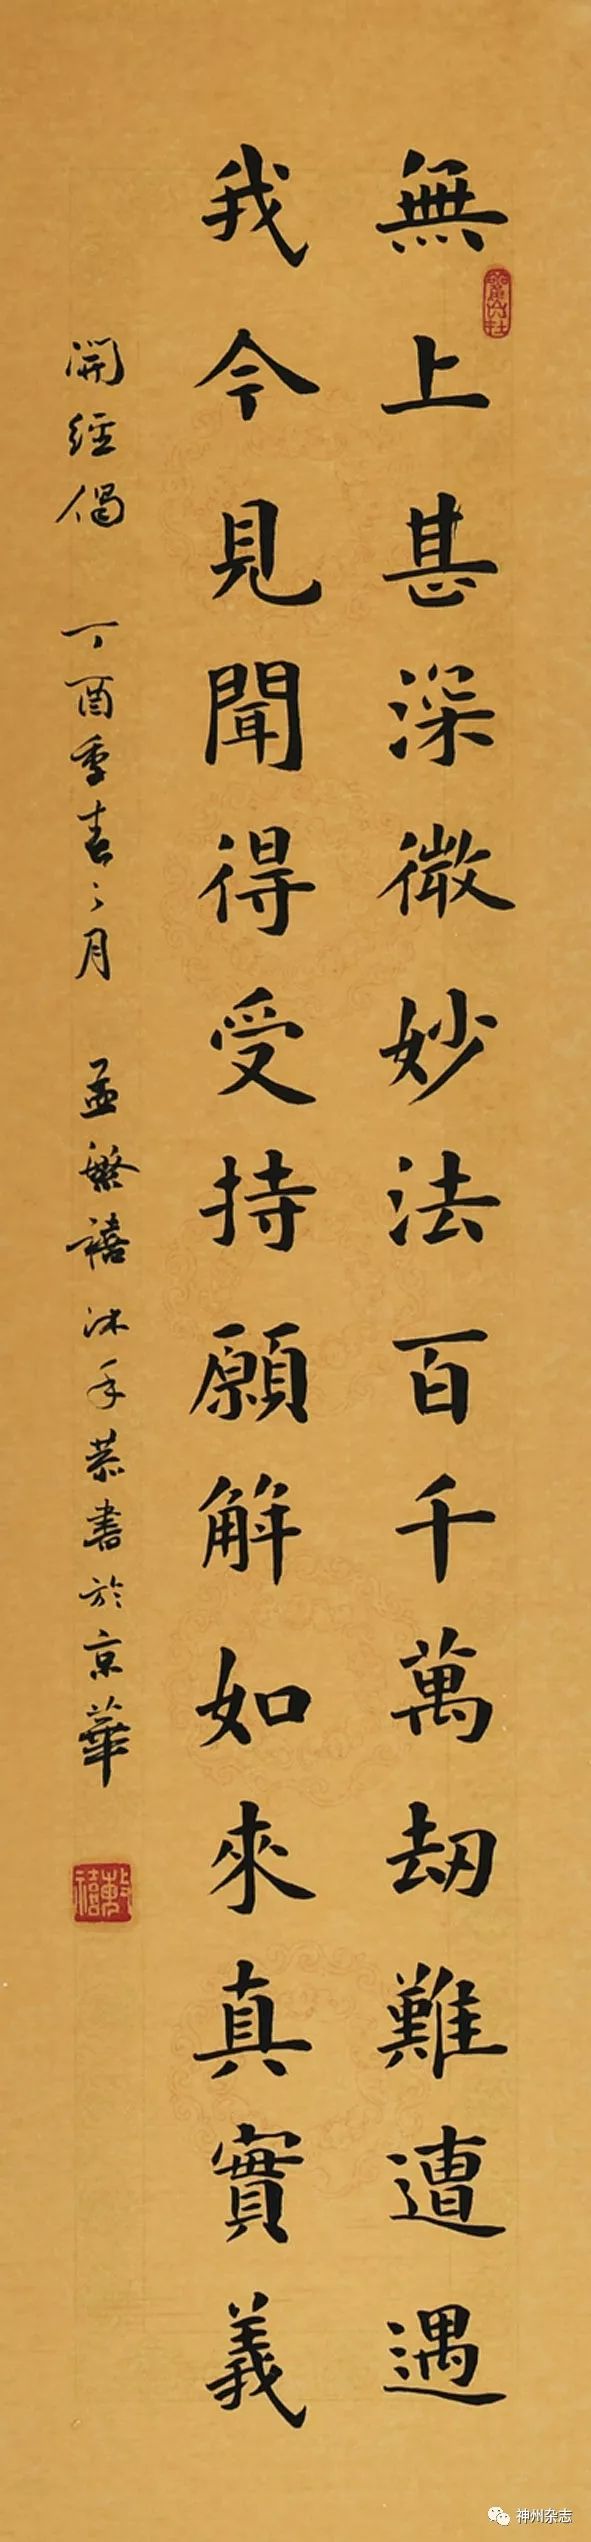 無上甚深微妙法百千萬劫難遭遇
我今見聞得受持願解如來真實義
開經偈 丁酉季春二月 孟繁禧沐手恭書於京華
神州杂志